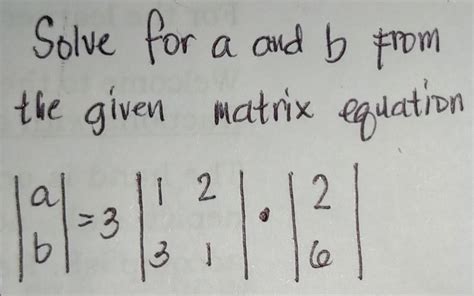 Solve for a and b from
the given matrix equation
|a| = 3 |1 2| • |2|
|b| |3 1| |6|